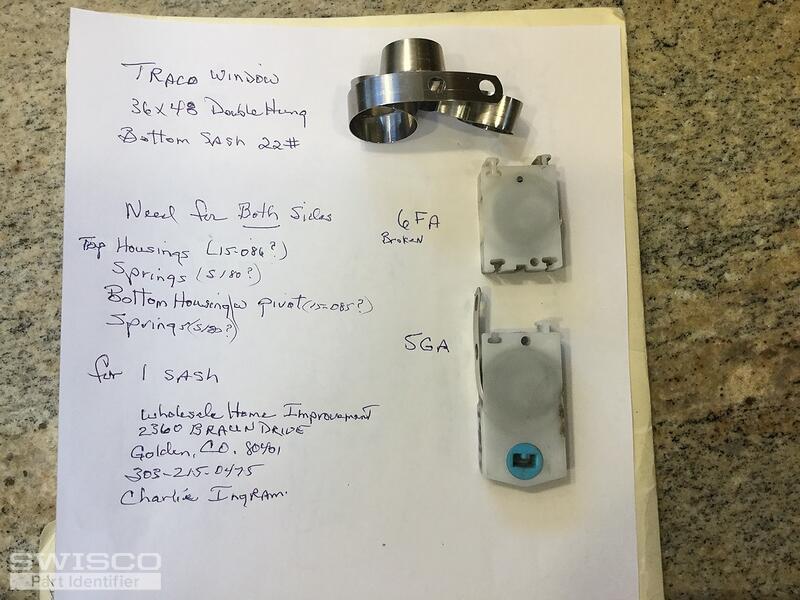 TRACO WINDOW
36x48 Double Hung
Bottom Sash 22#
Need for Both Sides
Top Housings (15-086?)
Springs (5180?)
Bottom Housing w pivot (15-085?)
Springs (5180?)
for 1 SASH
Wholesale Home Improvement
2360 BRAUN DRIVE
Golden, CO. 80401
303-215-0475
Charlie Ingram.
6FA
Broken
5GA
SWISCO
Part Identifier